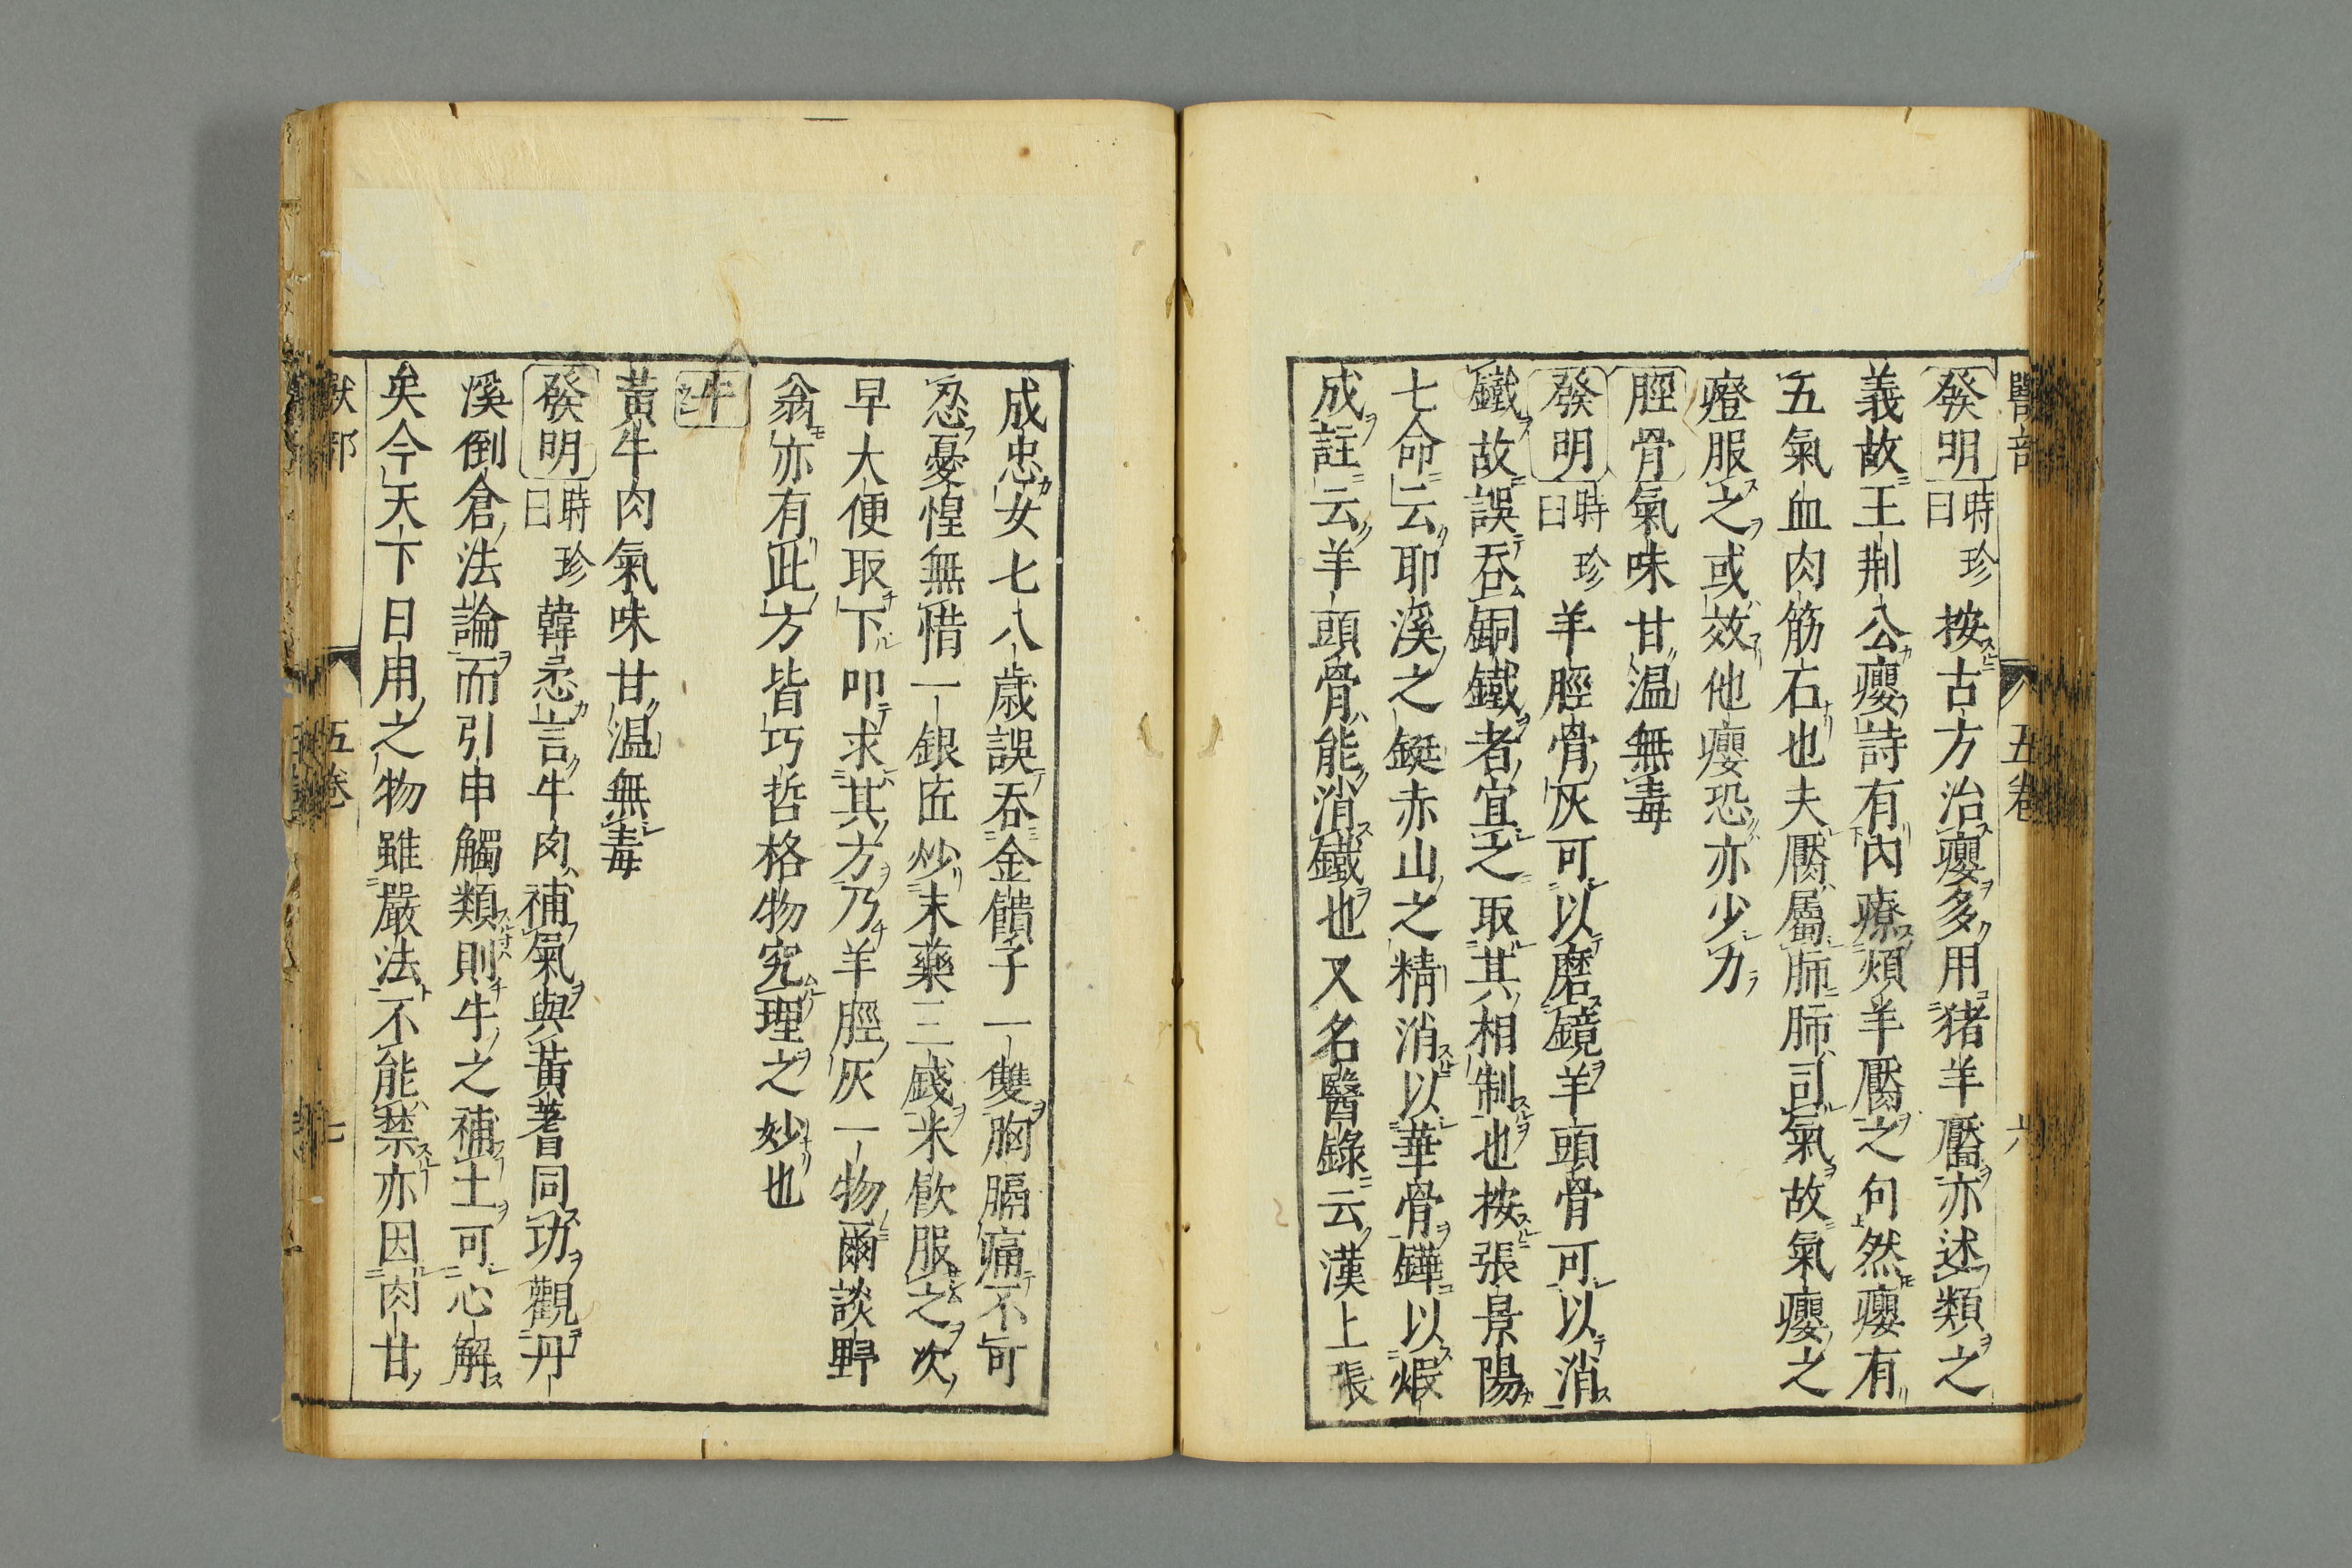 發明 時珍曰 按古方治癭多用猪羊靨亦述類之
義故王荆公癭詩有内療煩羊靨之句然癭有
五氣血肉筋石也夫靨屬肺肺司氣故氣癭之
癦服之或效他癭恐亦少力
脛骨氣味甘温無毒
發明 時珍曰 羊脛骨灰可以磨鏡羊頭骨可以消
鐵故誤呑銅鐵者宜之取其相制也按張景陽
七命云耶溪之鋌赤山之精消以羊骨鏷以
成註云羊頭骨能消鐵也又名醫錄云漢上張
成忠女七八歳誤呑金饋子一雙胸膈痛不可
忍憂惶無惜一銀匠炒末藥三錢米飲服之次
早大便取下叩求其方乃羊脛灰一物爾談野
翁亦有此方皆巧哲格物究理之妙也
牛
黄牛肉氣味甘温無毒
發明 時珍曰 韓忎言牛肉補氣與黄耆同功觀丹
溪倒倉法論而引申觸類則牛之補土可心解
矣今天下日用之物雖嚴法不能禁亦因肉甘
獸部 五卷 七